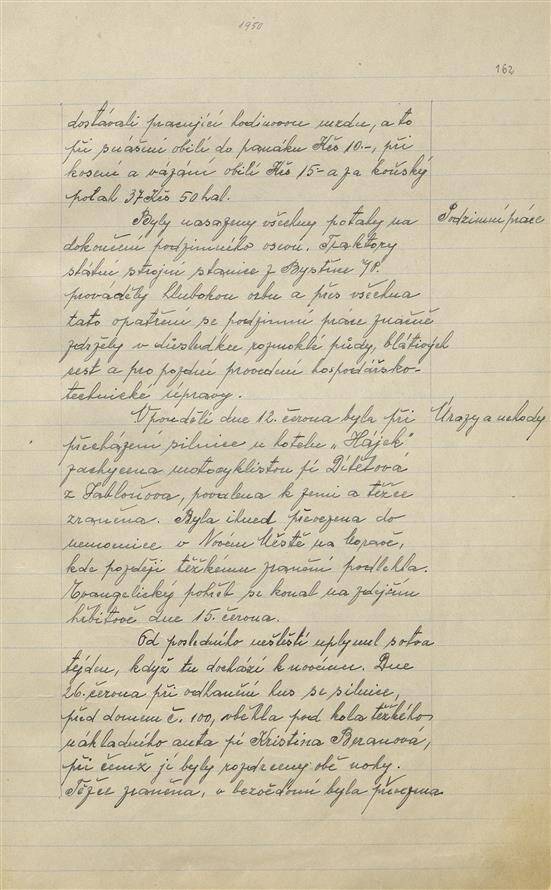 1950
162
dostávali pracující hodinovou mzdu, a to
při snášení obilí do panáku Kčs 10.-, při
kosení a vázání obilí Kčs 15-a za koňský
potah 37 Kčs 50 hal.
Byly nasazeny všechny potahy na
Podzimní práce
dokončení podzimního osevu. Traktory
státní strojní stanice z Bystřice n/P.
prováděly hlubokou orbu a přes všechna
tato opatření se podzimní práce značně
zdržely v důsledku rozmoklé půdy, blátivých
cest a pro pozdní provedení hospodářsko-
technické úpravy.
V pondělí dne 12. června byla při
Úrazy a nehody
přecházení silnice u hotelu „Hájek"
zachycena motocyklistou pí Dítětová
z Jabloňova, povalena k zemi a těžce
zraněna. Byla ihned převezena do
nemocnice v Novém Městě na Moravě,
kde později těžkému zranění podlehla.
Evangelický pohřeb se konal na zdejším
hřbitově dne 15. června.
Od posledního neštěstí uplynul sotva
týden, když tu dochází k novému. Dne
26. června při odhánění hus se silnice,
před domem č. 100, vběhla pod kola těžkého
nákladního auta pí Kristina Beranová,
při čemž jí byly rozdrceny obě nohy.
Těžce zraněna, v bezvědomí byla převezena